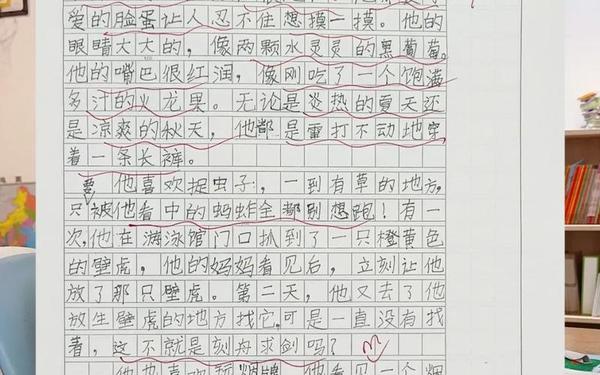 爱的脸蛋让人忍不住想摸一摸。他的
眼睛大大的，像两颗水灵灵的黑葡萄。
他的嘴巴很红润，像刚吃了一个饱满
多汁的火龙果。无论是炎热的夏天还
是凉爽的秋天，他都是雷打不动地穿
着一条长裤。
他喜欢捉虫子，一到有草的地方，
只要被他看中的蚂蚱全都别想跑！有一
次，他在游泳馆门口抓到了一只橙黄色
的壁虎，他的妈妈看见后，立刻让他
放了那只壁虎。第二天，他又去了他
放生壁虎的地方找它，可是一直没有找
着，这不就是刻舟求剑吗？